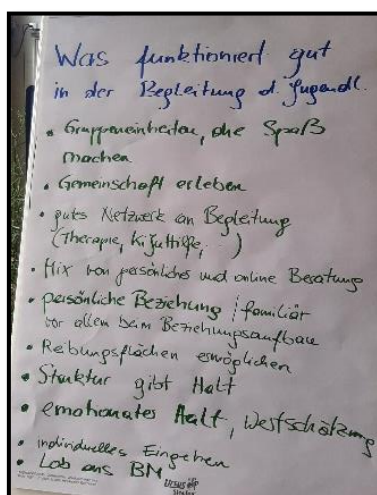 Was funktioniert gut
in der Begleitung d. Jugendl.
• Gruppeneinheiten, die Spaß
machen
• Gemeinschaft erleben
• gutes Netzwerk an Begleitung
(Therapie, KiJuHilfe, )
• Mix von persönliches und online Beratung
• persönliche Beziehung / familiär
vor allem beim Beziehungsaufbau
• Reibungsflächen ermöglichen
• Struktur gibt Halt
• emotionales Halt, Wertschätzung
• individuelles Eingehen
• Lob ans BM